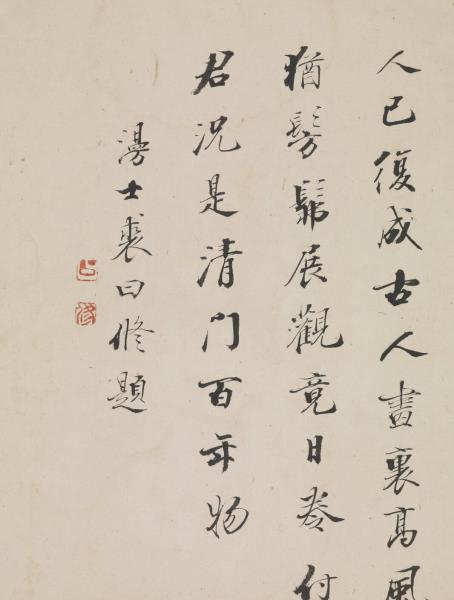 人已復成古人畫裏高風
猶髣髴展觀竟日卷付
君況是清門百年物
漫士裘曰修題
曰
修